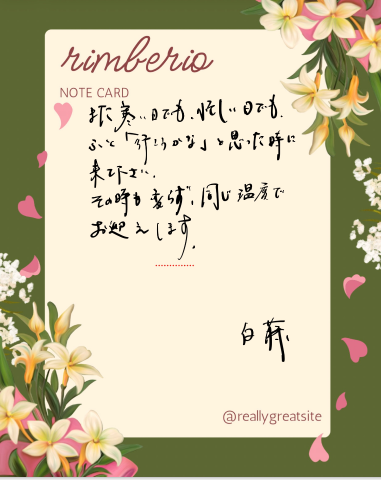 rimberio
NOTE CARD
また寒い日でも、忙しい日でも、
ふと「行こうかな」と思った時に
来て下さい。
その時も変らず、同じ温度で
お迎えします。
白藤
@reallygreatsite